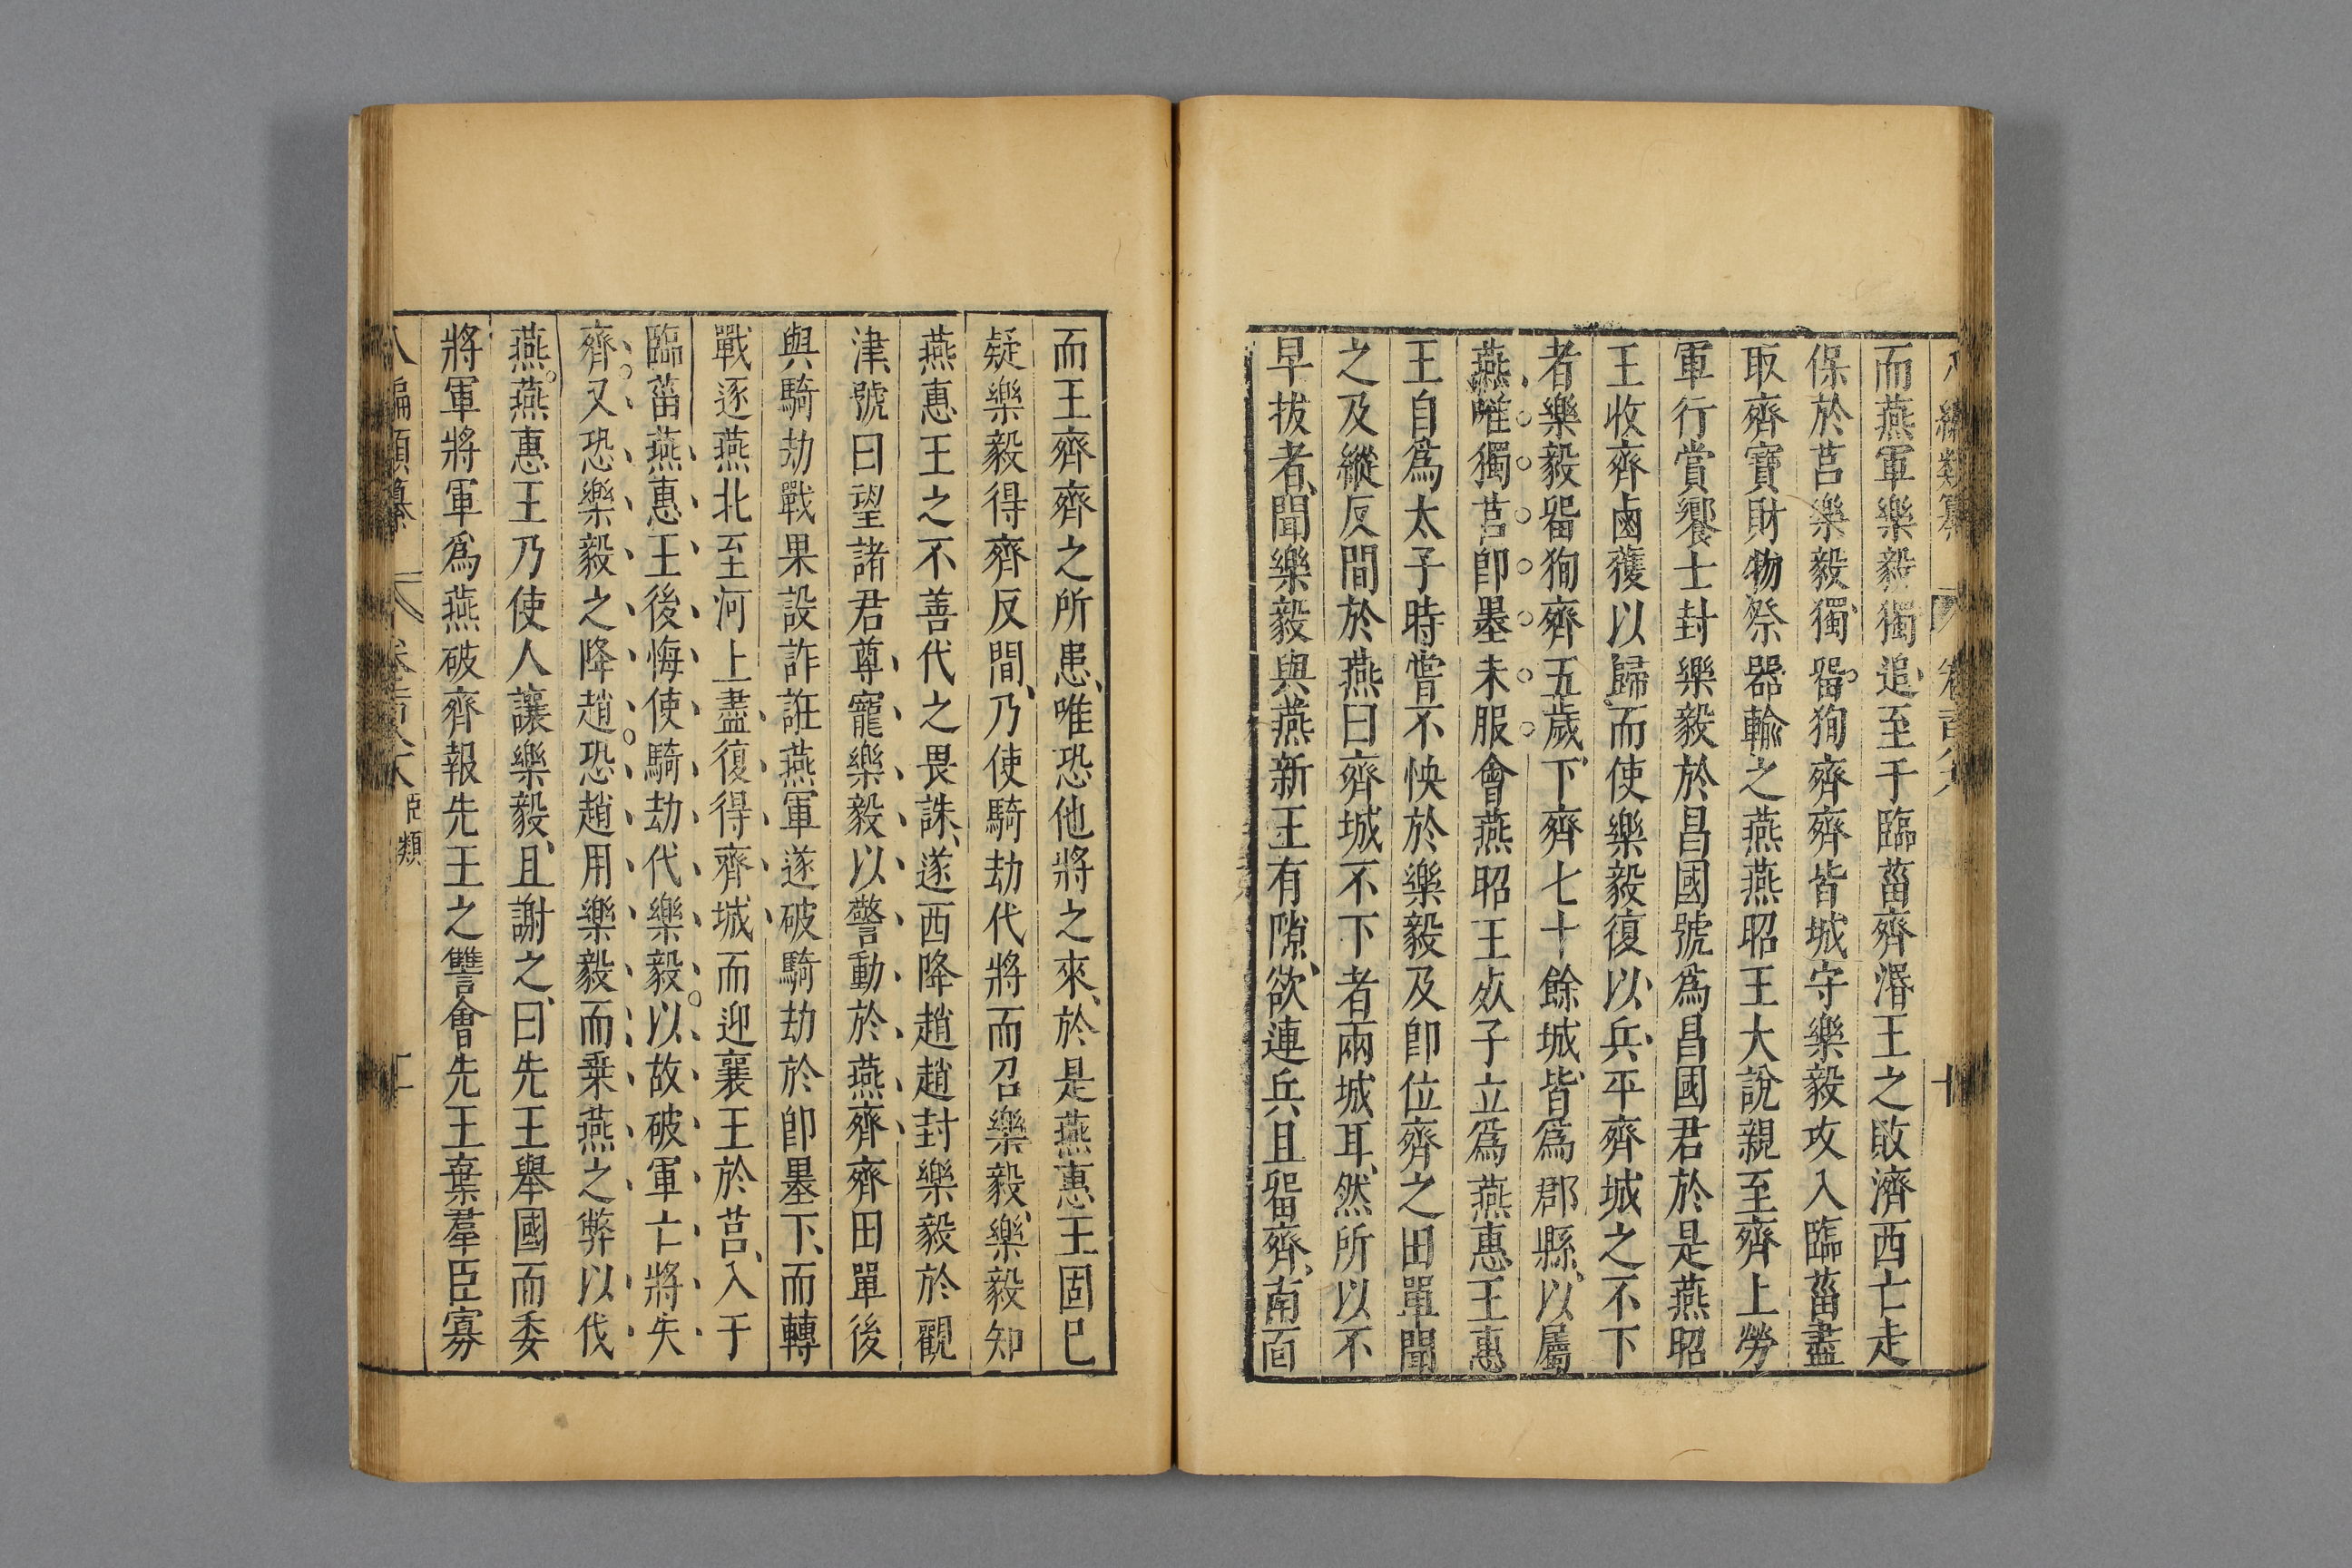 八編類纂 卷一百六 十
而燕軍樂毅獨追至于臨菑齊湣王之敗濟西亡走
保於莒樂毅獨畱狥齊齊皆城守樂毅攻入臨菑盡
取齊寶財物祭器輸之燕燕昭王大說親至齊上勞
軍行賞饗士封樂毅於昌國號爲昌國君於是燕昭
王收齊鹵獲以歸而使樂毅復以兵平齊城之不下
者樂毅畱狥齊五歲下齊七十餘城皆爲郡縣以屬
燕唯獨莒卽墨未服會燕昭王㱔子立爲燕惠王惠
王自爲太子時嘗不快於樂毅及卽位齊之田單聞
之及縱反間於燕曰齊城不下者兩城耳然所以不
早拔者聞樂毅與燕新王有隙欲連兵且畱齊南面
而王齊齊之所患唯恐他將之來於是燕惠王固已
疑樂毅得齊反間乃使騎劫代將而召樂毅樂毅知
燕惠王之不善代之畏誅遂西降趙趙封樂毅於觀
津號曰望諸君尊寵樂毅以警動於燕齊齊田單後
與騎劫戰果設詐誑燕軍遂破騎劫於卽墨下而轉
戰逐燕北至河上盡復得齊城而迎襄王於莒入于
臨菑燕惠王後悔使騎劫代樂毅以故破軍亡將失
齊又恐樂毅之降趙恐趙用樂毅而乗燕之弊以伐
燕燕惠王乃使人讓樂毅且謝之曰先王舉國而委
將軍將軍爲燕破齊報先王之讐會先王棄羣臣寡
八編類纂 臣類